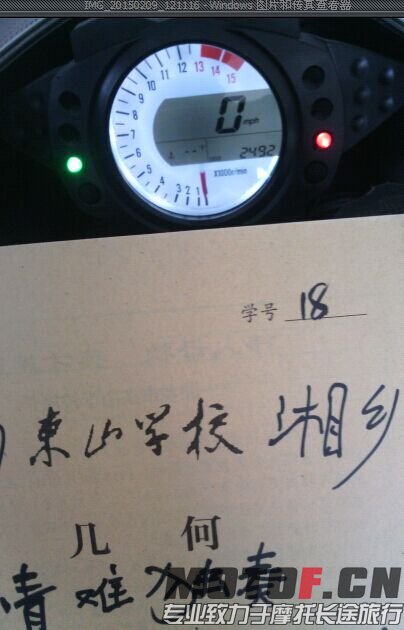 IMG_20150209_121116 - Windows 图片和传真查看器
1 2 3 4 5 6 7 8 9 10 11 12 13 14 15
0 mph
A --
2492
X1000r/min
学号 18
東山学校 湘乡
几 何
情难
MOTOF.CN
专业致力于摩托长途旅行